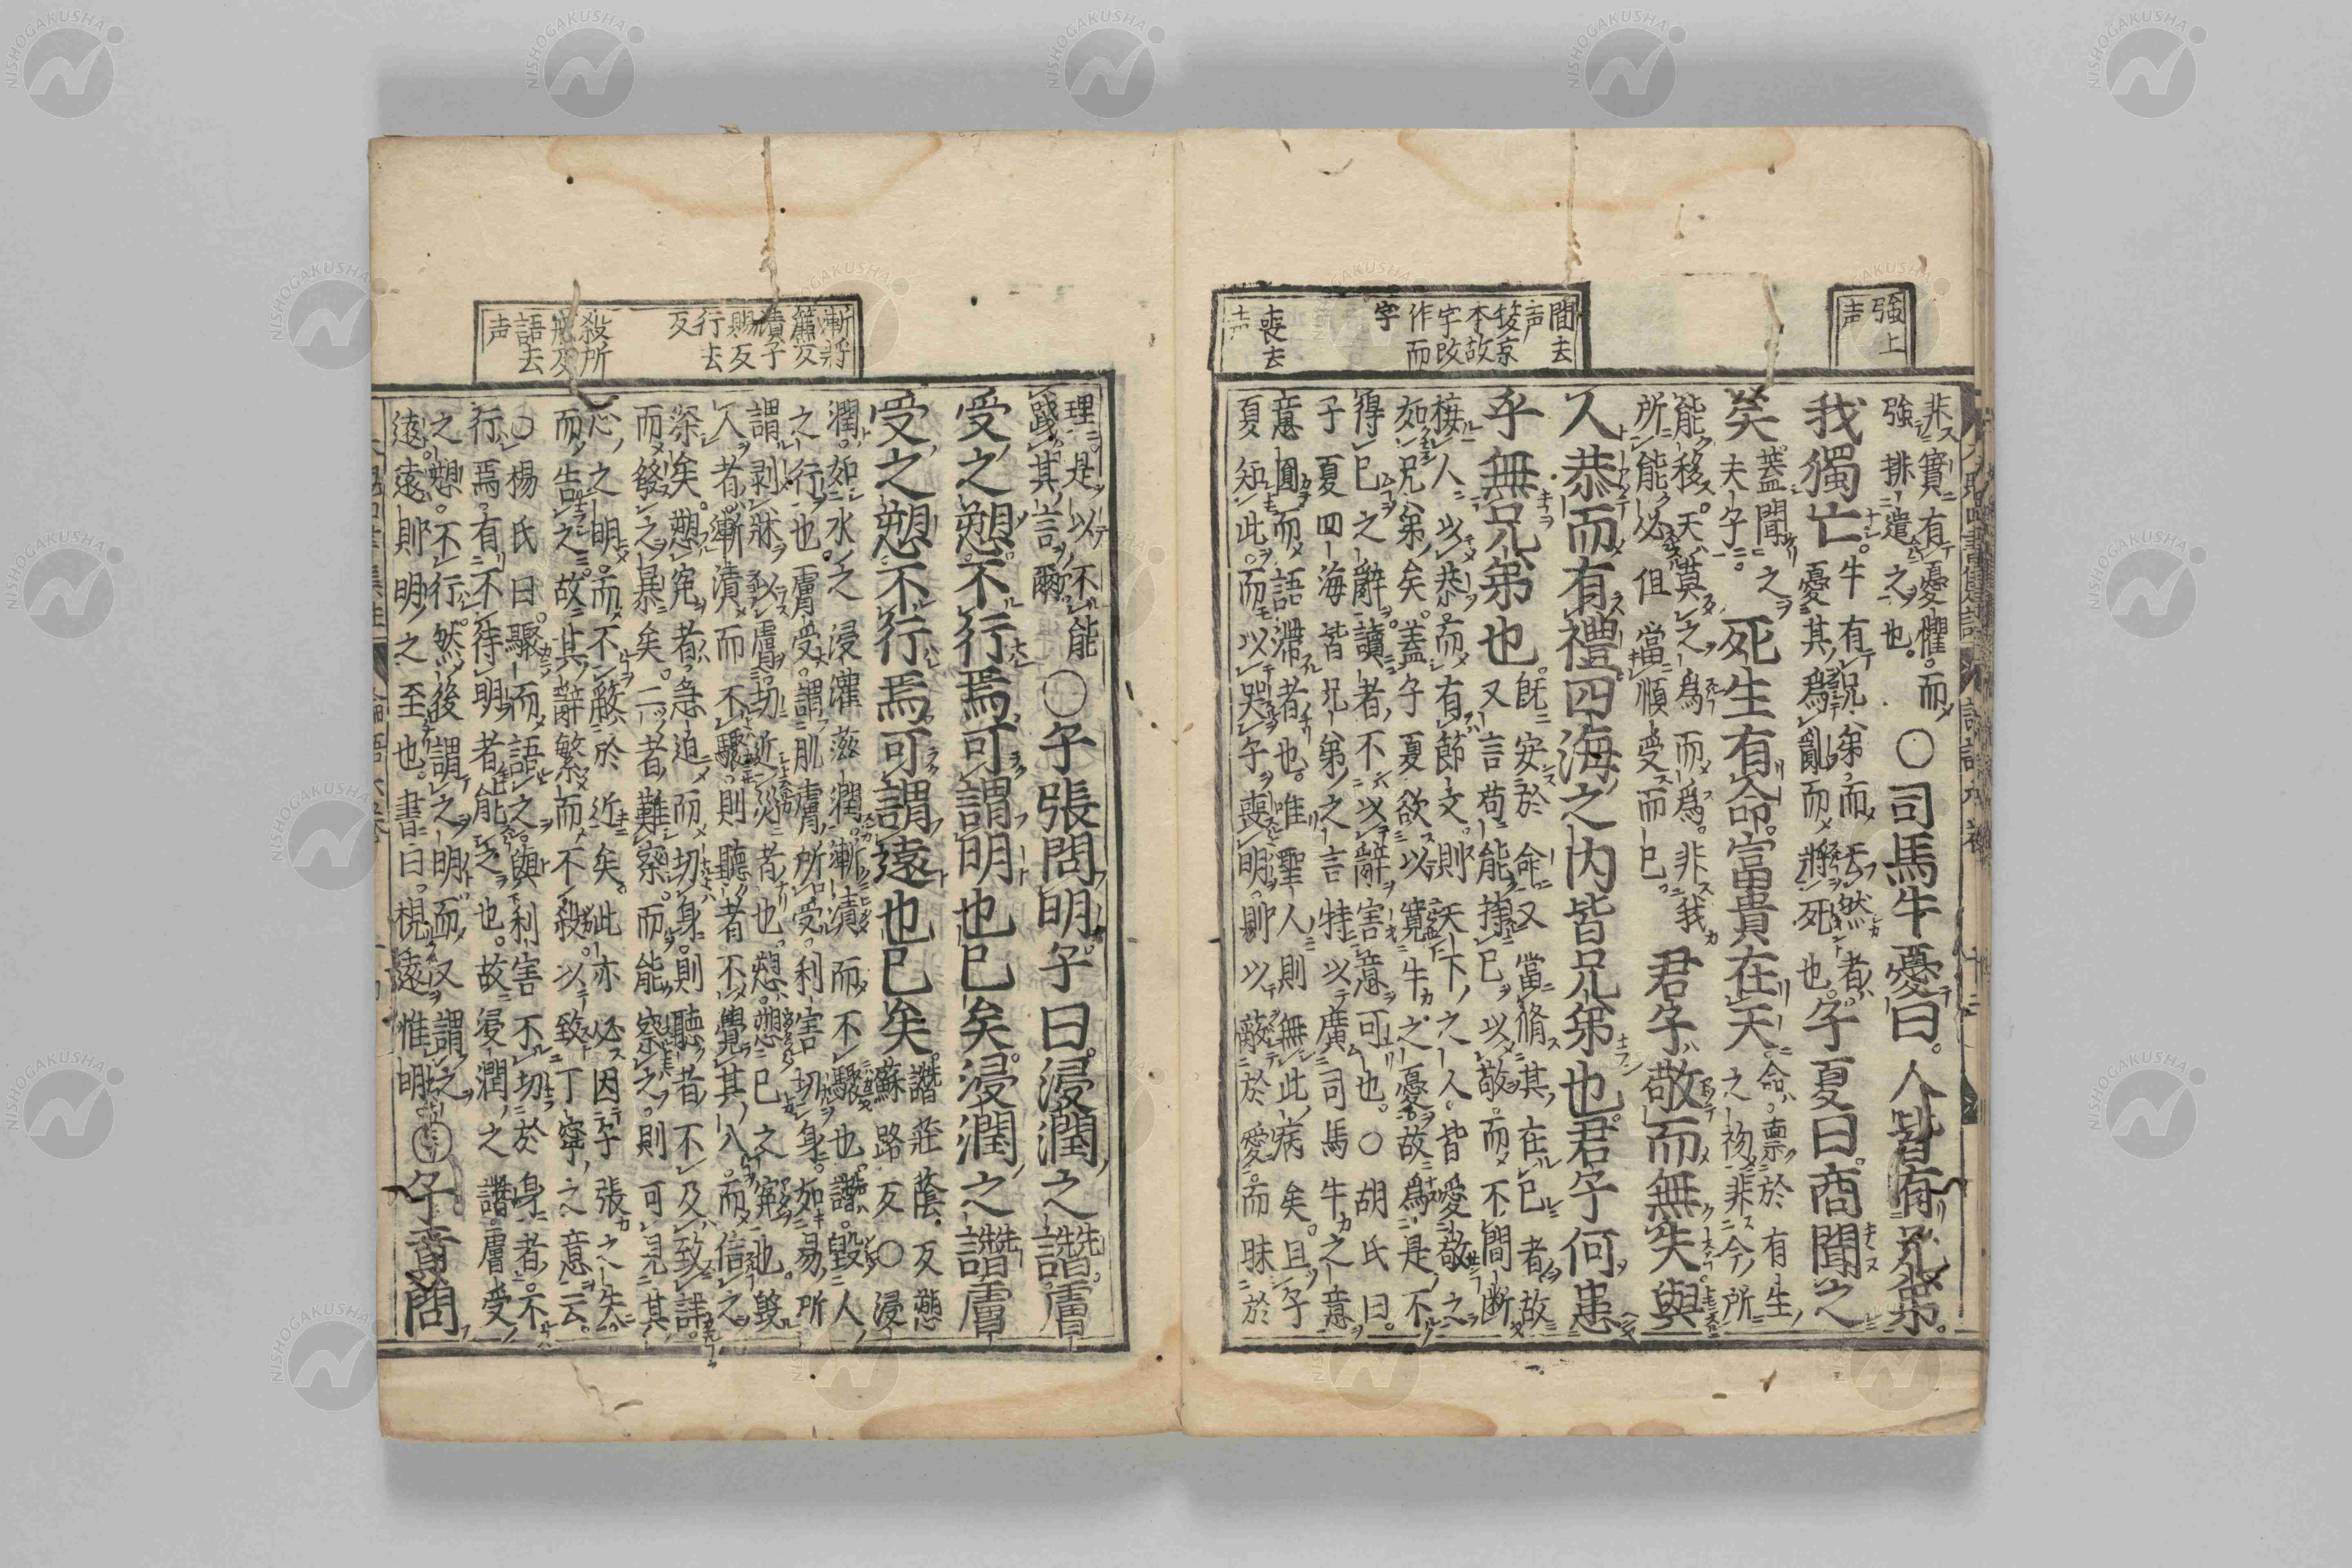 強上
声
間去
声
本故
字改
作而
字
喪去
声
非實有憂懼。而
強排遣之也。
〇司馬牛憂曰。人皆有兄弟。
我獨亡。
牛有兄弟。而云然者
憂其為亂而將死也。
子夏曰。商聞之
矣。
蓋聞之
夫子。
死生有命。富貴在天
命禀於有生
之初非今所
能移。天莫之為而為。非我
所能必但當順受而已。
君子敬而無失與
人恭而有禮四海之内皆兄弟也。君子何患
乎無兄弟也。
既安於命又當脩其在已者故
又言苟能持已以敬。而不間断
接人以恭而有節文。則天下之人。皆愛敬之
如兄弟矣。蓋子夏欲以寛牛之憂故為是不
得已之辭。讀者不以辭害意可也。〇胡氏曰。
子夏四海皆兄弟之言特以廣司馬牛之意
意圓而語滞者也。唯聖人則無此病矣。且子
夏知此。而以哭子喪明則以蔽於愛。而昧於
漸將
簾反
漬子
賜反
行去
反
殺所
戒反
語去
声
理。是以不能
踐其言爾
〇子張問明。子曰。浸潤之譖。膚
受之愬。不行焉可謂明也已矣。浸潤之譖膚
受之愬不行焉可謂遠也已矣。
譖莊蔭反愬
蘇路反〇浸
潤。如水之浸灌滋潤。漸漬而不驟也譖。毀人
之行也。膚受。謂肌膚所受。利害切身。如易所
謂剥牀以膚。切近災者也。愬。愬己之寃也。毀
人者漸漬而不驟。則聽者不覺其入。而信之
深矣。愬寃者。急迫而切身。則聽者不及致詳
而發之暴矣。二者難察。而能察之。則可見其
心之明。而不蔽於近矣。此亦必因子張之失。
而告之。故其辭繁而不殺。以致丁寧之意云。
〇楊氏曰。驟而語之。與利害不切於身者。不
行焉。有不待明者能之也。故浸潤之譖。膚受
之愬。不行。然後謂之明。而又謂之
遠。遠則明之至也。書曰。視遠惟明
〇子貢問